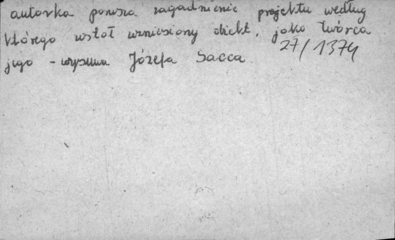 autorka porusza zagadnienie projektu według
którego został wzniesiony obiekt, jako twórcę
jego - wysuwa Józefa Sacca
27/1374